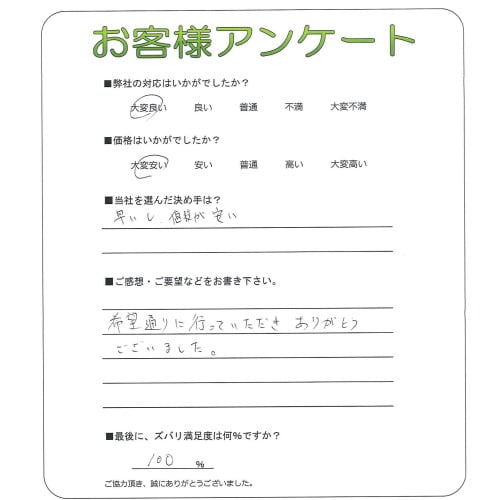 お客様アンケート
■弊社の対応はいかがでしたか？
大変良い 良い 普通 不満 大変不満
■価格はいかがでしたか？
大変安い 安い 普通 高い 大変高い
■当社を選んだ決め手は？
早いし、価格が安い
■ご感想・ご要望などをお書き下さい。
希望通りに行っていただき ありがとう
ございました。
■最後に、ズバリ満足度は何%ですか？
100 %
ご協力頂き、誠にありがとうございました。